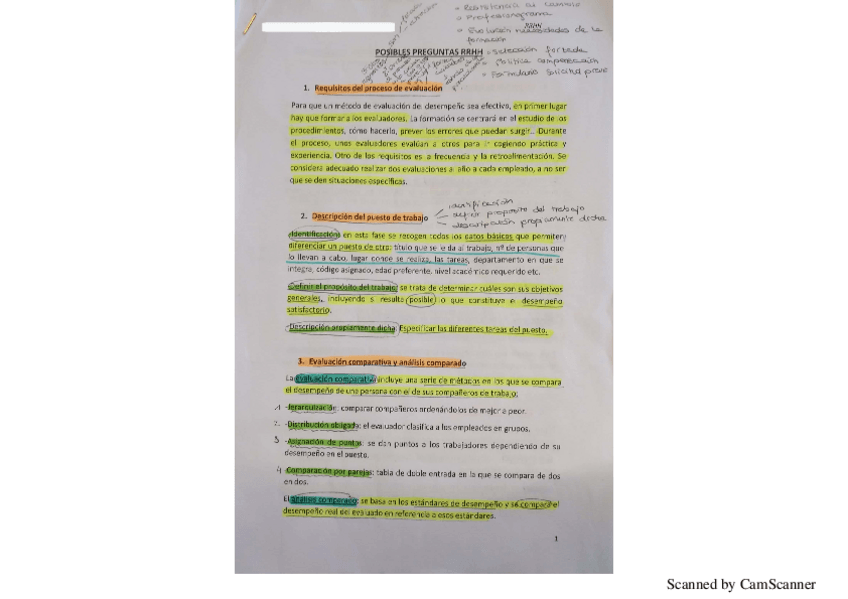 - Resistencia al cambio
- Profesiograma
RRHH
- Evolución necesidades de la
formación
POSIBLES PREGUNTAS RRHH
- Selección forzada
- Política compensación
- Formulario solicitud
1. Requisitos del proceso de evaluación
Para que un método de evaluación de desempeño sea efectiva, en primer lugar
hay que formar a los evaluadores. La formación se centrará en el estudio de los
procedimientos, cómo hacerlo, prever los errores que puedan surgir... Durante
el proceso, unos evaluadores evalúan a otros para ir cogiendo práctica y
experiencia. Otro de los requisitos es la frecuencia y la retroalimentación. Se
considera adecuado realizar dos evaluaciones al año a cada empleado, a no ser
que se den situaciones específicas.
identificación
2. Descripción del puesto de trabajo
definir propósito del trabajo
descripción propiamente dicha
-Identificación: en esta fase se recogen todos los datos básicos que permiten
diferenciar un puesto de otro: título que se le da al trabajo, nº de personas que
lo llevan a cabo, lugar donde se realiza, las tareas, departamento en que se
integra, código asignado, edad preferente, nivel académico requerido etc.
-Definir el propósito del trabajo: se trata de determinar cuáles son sus objetivos
generales, incluyendo si resulta posible lo que constituye el desempeño
satisfactorio.
-Descripción propiamente dicha: Especificar las diferentes tareas del puesto.
3. Evaluación comparativa y análisis comparado
La evaluación comparativa incluye una serie de métodos en los que se compara
el desempeño de una persona con el de sus compañeros de trabajo:
1 -Jerarquización: comparar compañeros ordenándolos de mejor a peor.
2 -Distribución obligada: el evaluador clasifica a los empleados en grupos.
3 -Asignación de puntos: se dan puntos a los trabajadores dependiendo de su
desempeño en el puesto.
4 -Comparación por parejas: tabla de doble entrada en la que se compara de dos
en dos.
El análisis comparado: se basa en los estándares de desempeño y se compara el
desempeño real del evaluado en referencia a esos estándares.
1
Scanned by CamScanner